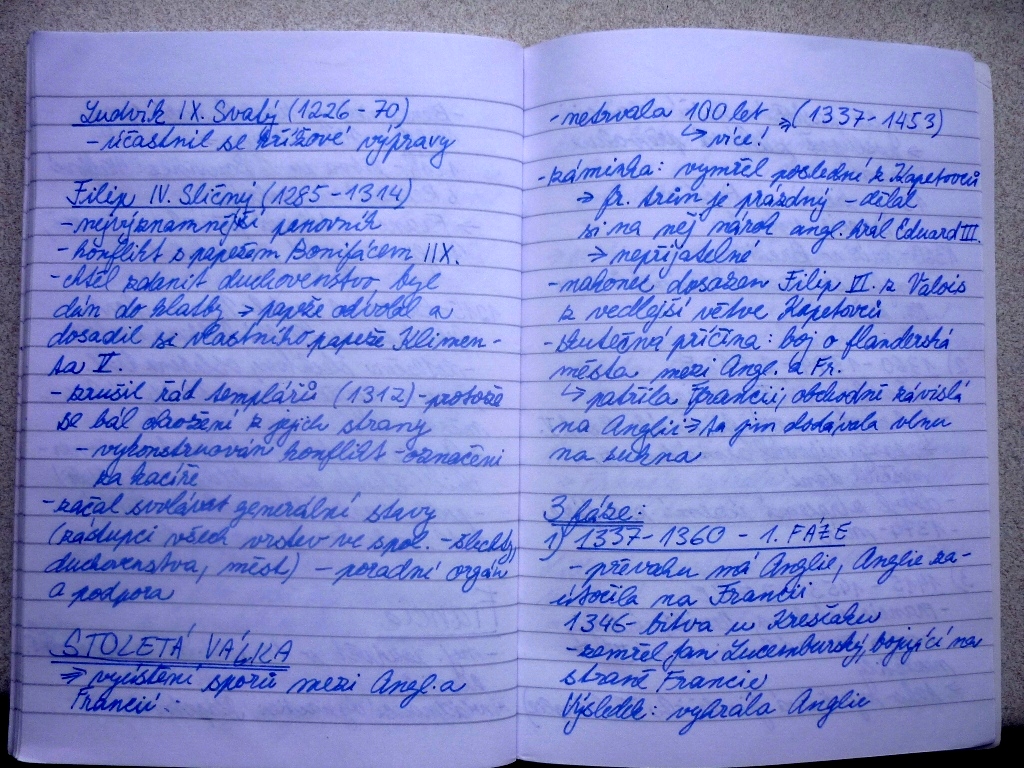 Ludvík IX. Svatý (1226-70)
- účastnil se křížové výpravy
Filip IV. Sličný (1285-1314)
- nejvýznamnější panovník
- konflikt s papežem Bonifácem IIX.
- chtěl zdanit duchovenstvo byl
dán do klatby → papeže odvolal a
dosadil si vlastního papeže Klimen-
ta V.
- zrušil řád templářů (1312) - protože
se bál ohrožení z jejich strany
- vykonstruován konflikt - označeni
za kacíře
- začal svolávat generální stavy
(zástupci všech vrstev ve spol. - šlechty,
duchovenstva, měst) - poradní orgán
a podpora
STOLETÁ VÁLKA
⇒ vyústění sporů mezi Angl. a
Francií:
- netrvala 100 let ⇒ (1337-1453)
↳ více!
- záminka: vymřel poslední z Kapetovců
⇒ fr. trůn je prázdný - dělal
si na něj nárok angl. král Eduard III.
⇒ nepřijatelné
- nakonec dosazen Filip VI. z Valois
z vedlejší větve Kapetovců
- skutečná příčina: boj o flanderská
města mezi Angl. a Fr.
↳ patřila Francii, obchodně závislá
na Anglii ⇒ ta jim dodávala vlnu
na sukna
3 fáze:
1) 1337-1360 - 1. FÁZE
- převahu má Anglie, Anglie za-
útočila na Francii
1346 - bitva u Kresčaku
- zemřel Jan Lucemburský, bojující na
straně Francie
Výsledek: vyhrála Anglie